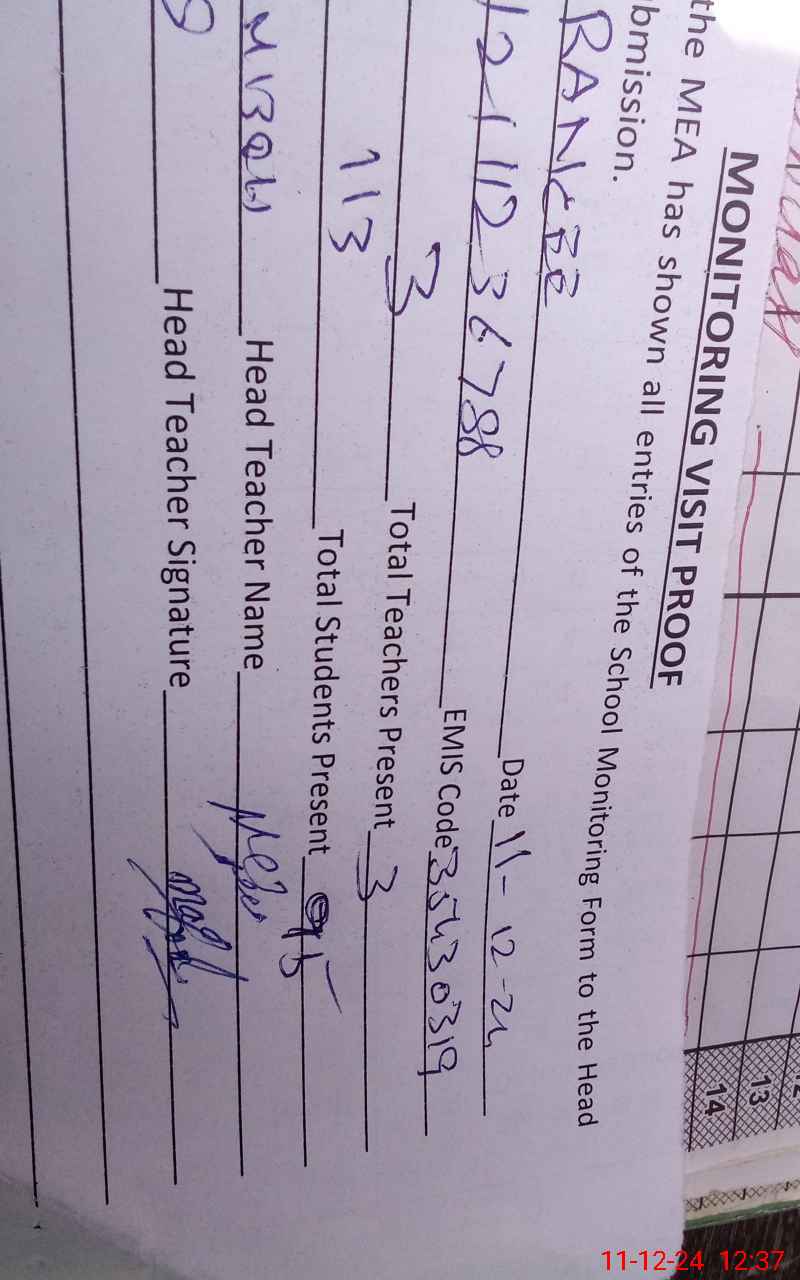 MONITORING VISIT PROOF
the MEA has shown all entries of the School Monitoring Form to the Head
bmission.
Date 11-12-24
121112367 88 EMIS Code 35430319
3 Total Teachers Present 3
113 Total Students Present 95
Head Teacher Name
Head Teacher Signature
13
14
11-12-24 12:37